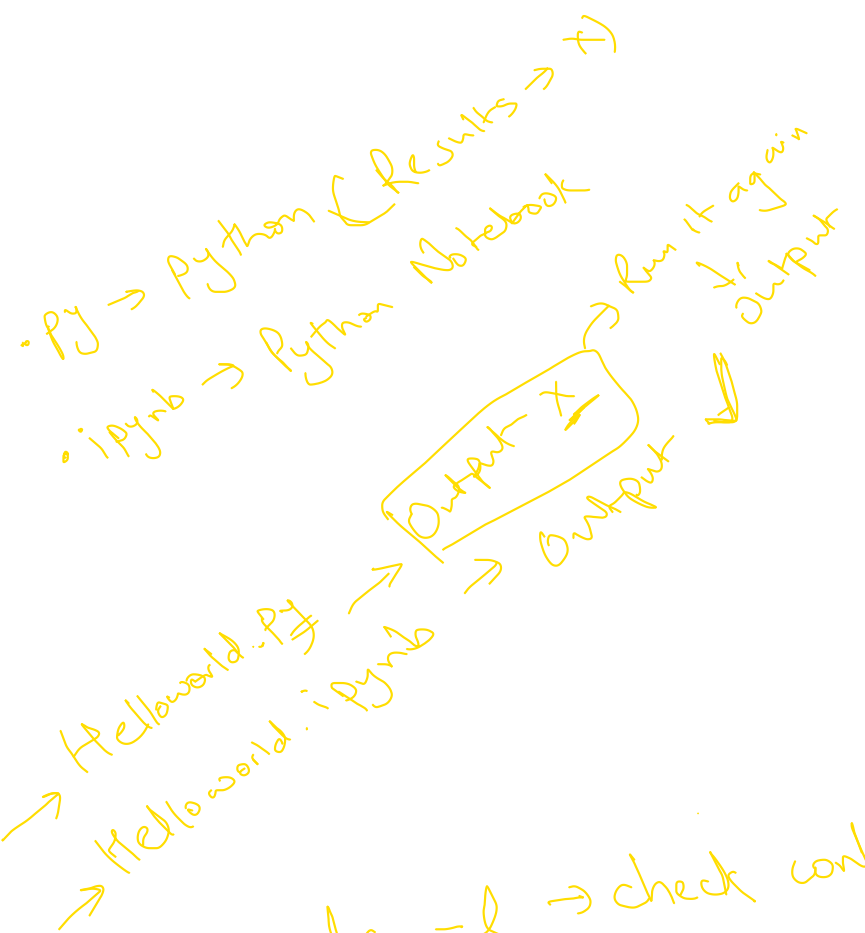 .py → Python (Results → X)
.ipynb → Python Notebook
→ Helloworld.py → Output X → Run it again
Output
→ Helloworld.ipynb → Output
-l → check